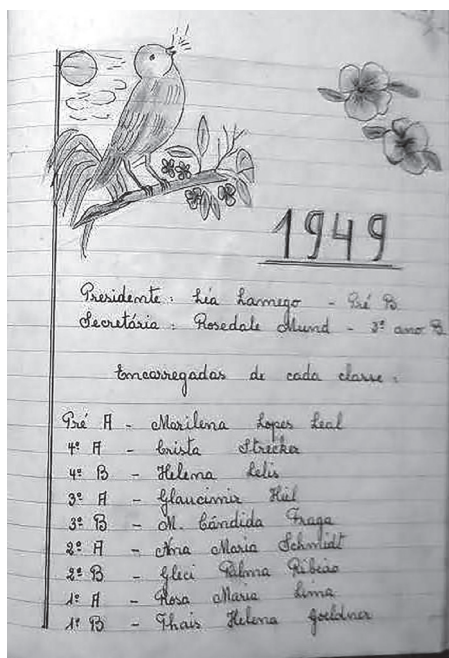 1949
Presidente: Léa Lamego - Pré B
Secretária: Rosedale Mund - 3º ano B
Encarregadas de cada classe:
Pré A - Marilena Lopes Leal
4º A - Crista Strecker
4º B - Helena Lelis
3º A - Glaucimir Hiel
3º B - M. Cândida Fraga
2º A - Ana Maria Schmidt
2º B - Gleci Palma Ribeiro
1º A - Rosa Maria Lima
1º B - Thais Helena Goeldner